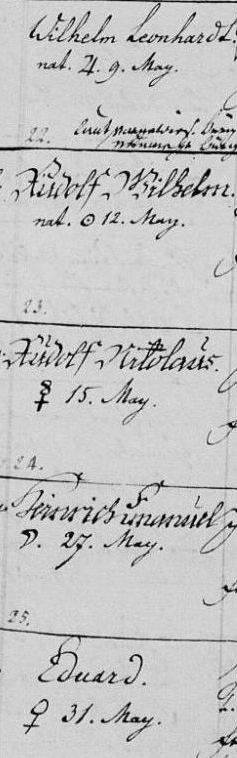 Wilhelm Leonhardt.
nat. ♃. 9. May.
22.
Rudolf Wilhelm.
nat. ☉ 12. May.
23.
Rudolf Nikolaus.
☿ 15. May.
24.
Heinrich Emanuel
☽. 27. May.
25.
Eduard.
♀ 31. May.